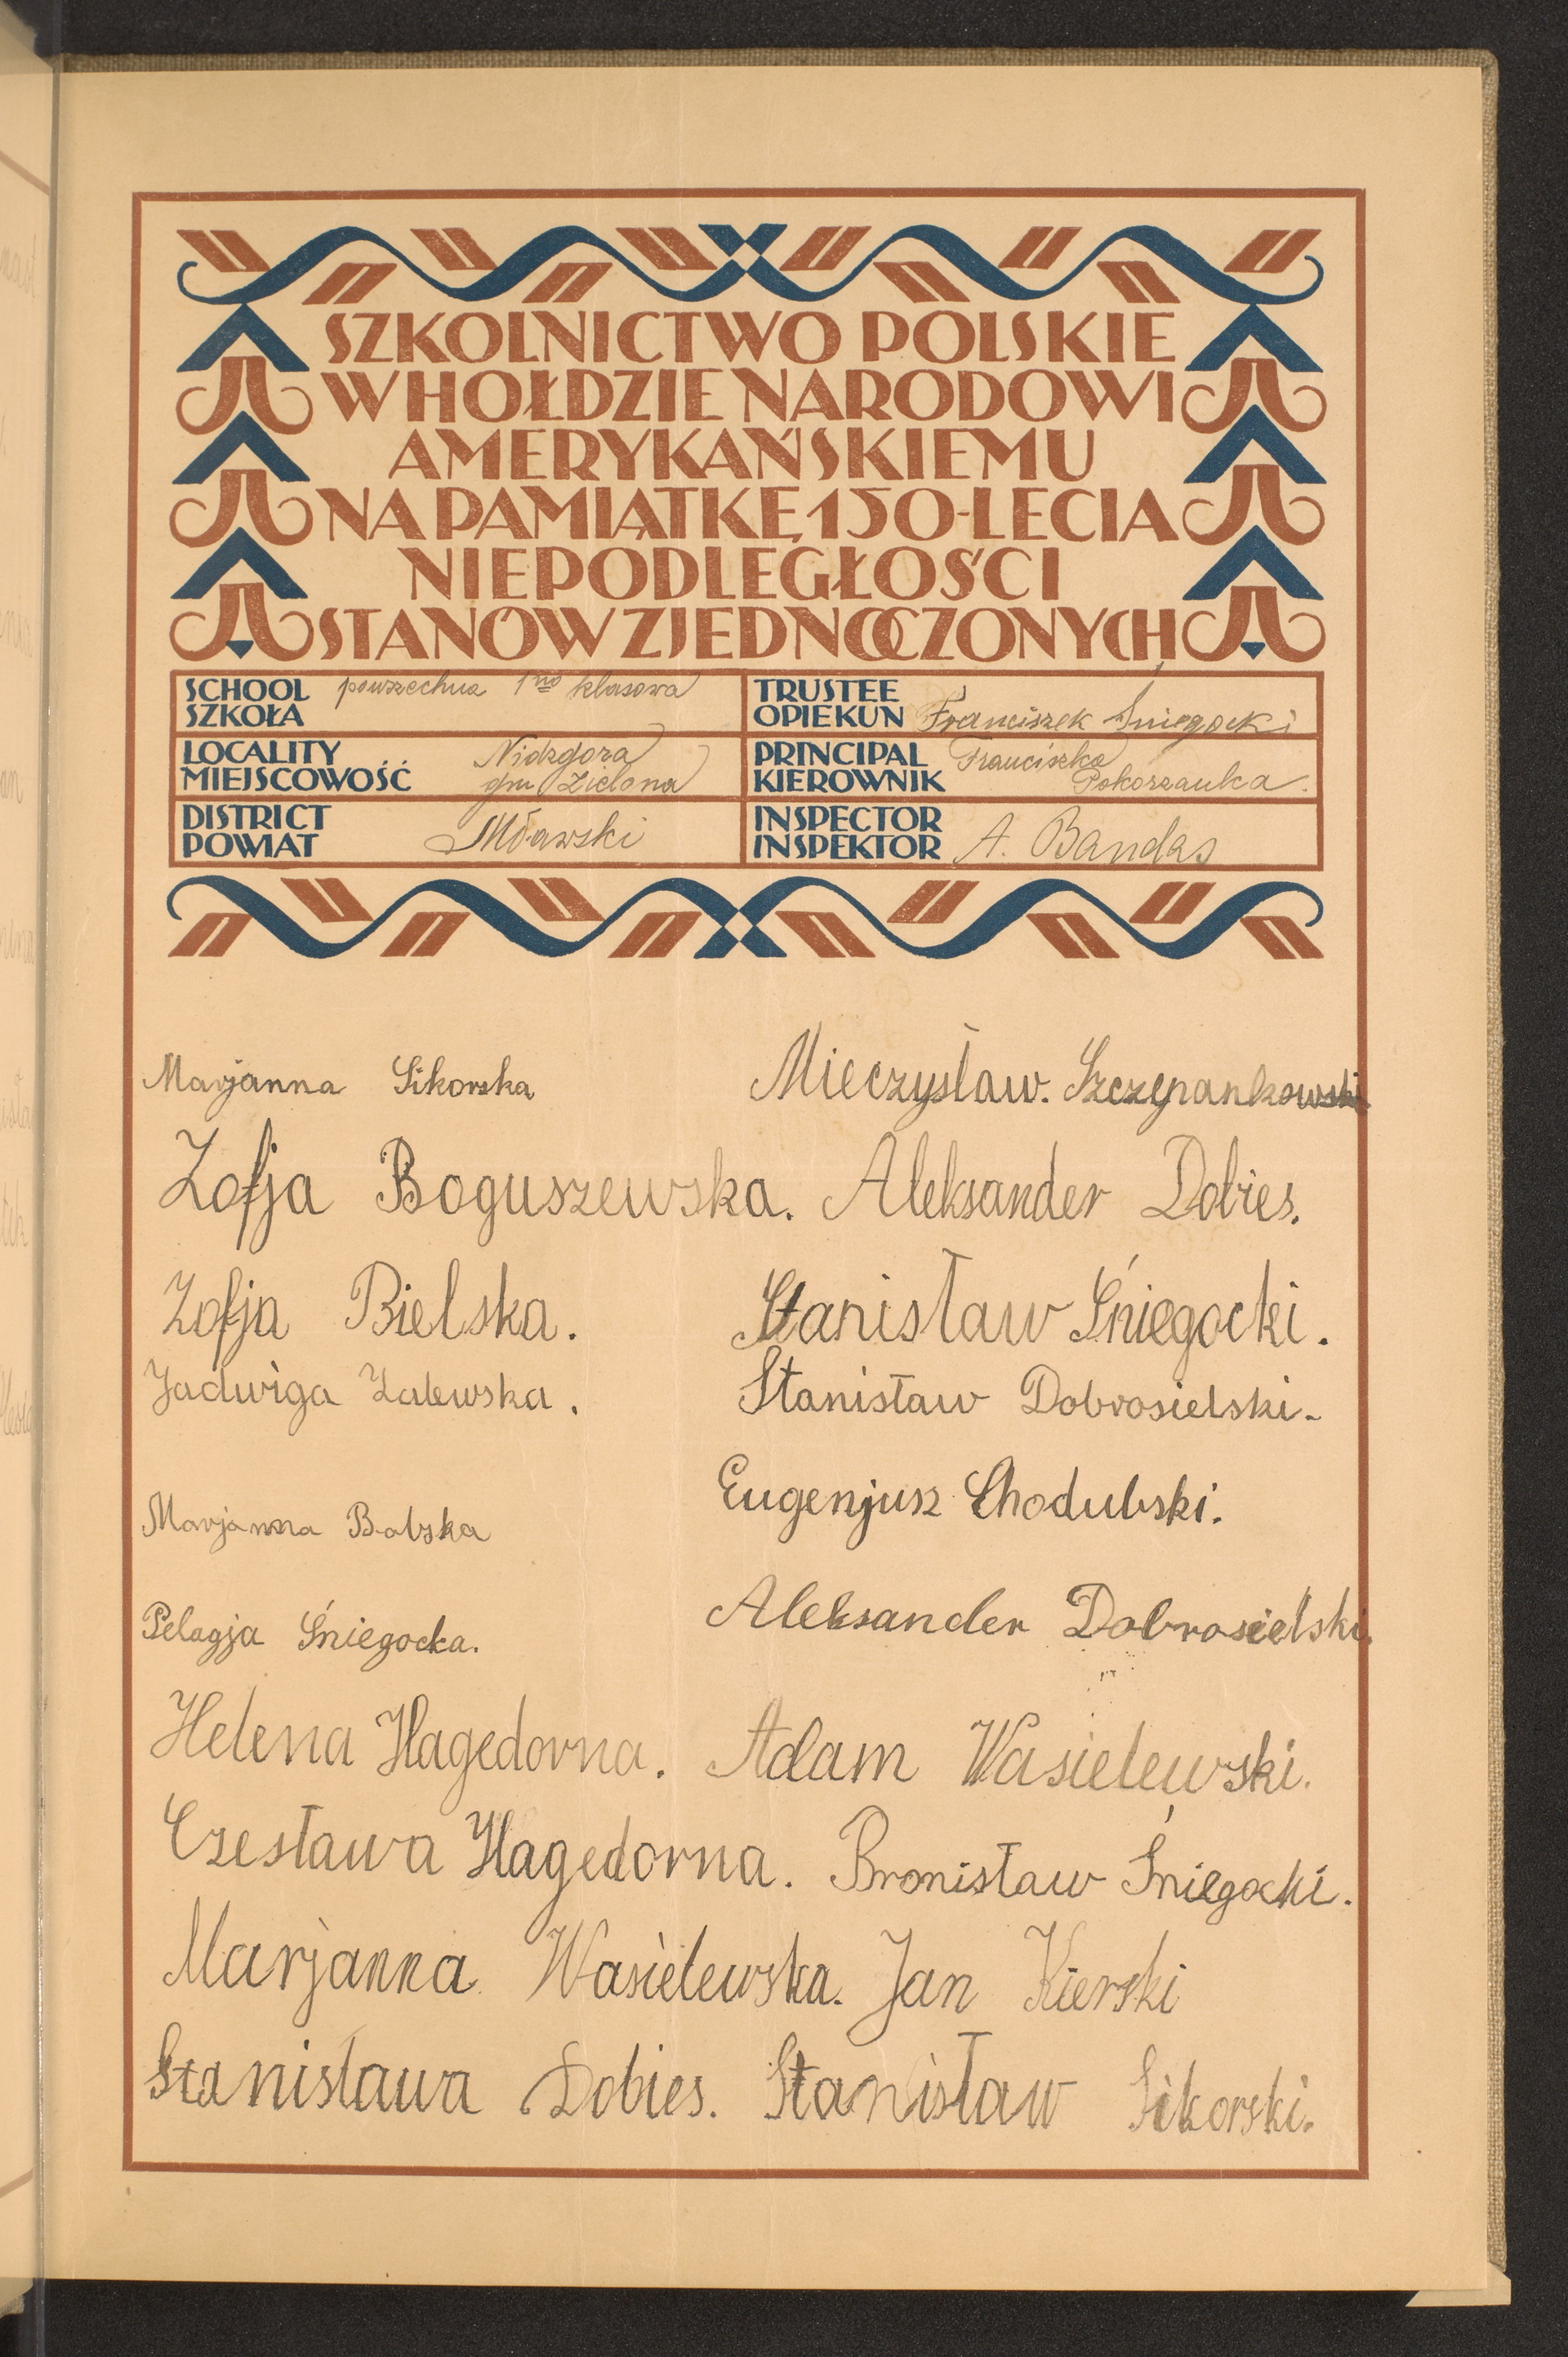 SZKOLNICTWO POLSKIE
W HOŁDZIE NARODOWI
AMERYKAŃSKIEMU
NA PAMIĄTKĘ 150-LECIA
NIEPODLEGŁOŚCI
STANÓW ZJEDNOCZONYCH
SCHOOL powszechna 1no klasowa
SZKOŁA
TRUSTEE
OPIEKUN Franciszek Śniegocki
LOCALITY Nidzgora
MIEJSCOWOŚĆ gm Zielona
PRINCIPAL Franciszka
KIEROWNIK Pokorzanka.
DISTRICT
POWIAT Mławski
INSPECTOR
INSPEKTOR A. Bandas
Marjanna Sikorska
Mieczysław. Szczepankowski
Zofja Boguszewska. Aleksander Dobies.
Zofja Bielska. Stanisław Śniegocki.
Jadwiga Zalewska. Stanisław Dobrosielski.
Eugenjusz Chodubski.
Marjanna Babska
Aleksander Dobrosielski.
Pelagja Śniegocka.
Helena Hagedorna. Adam Wasielewski.
Czesława Hagedorna. Bronisław Śniegocki.
Marjanna Wasielewska. Jan Kierski
Stanisława Dobies. Stanisław Sikorski.